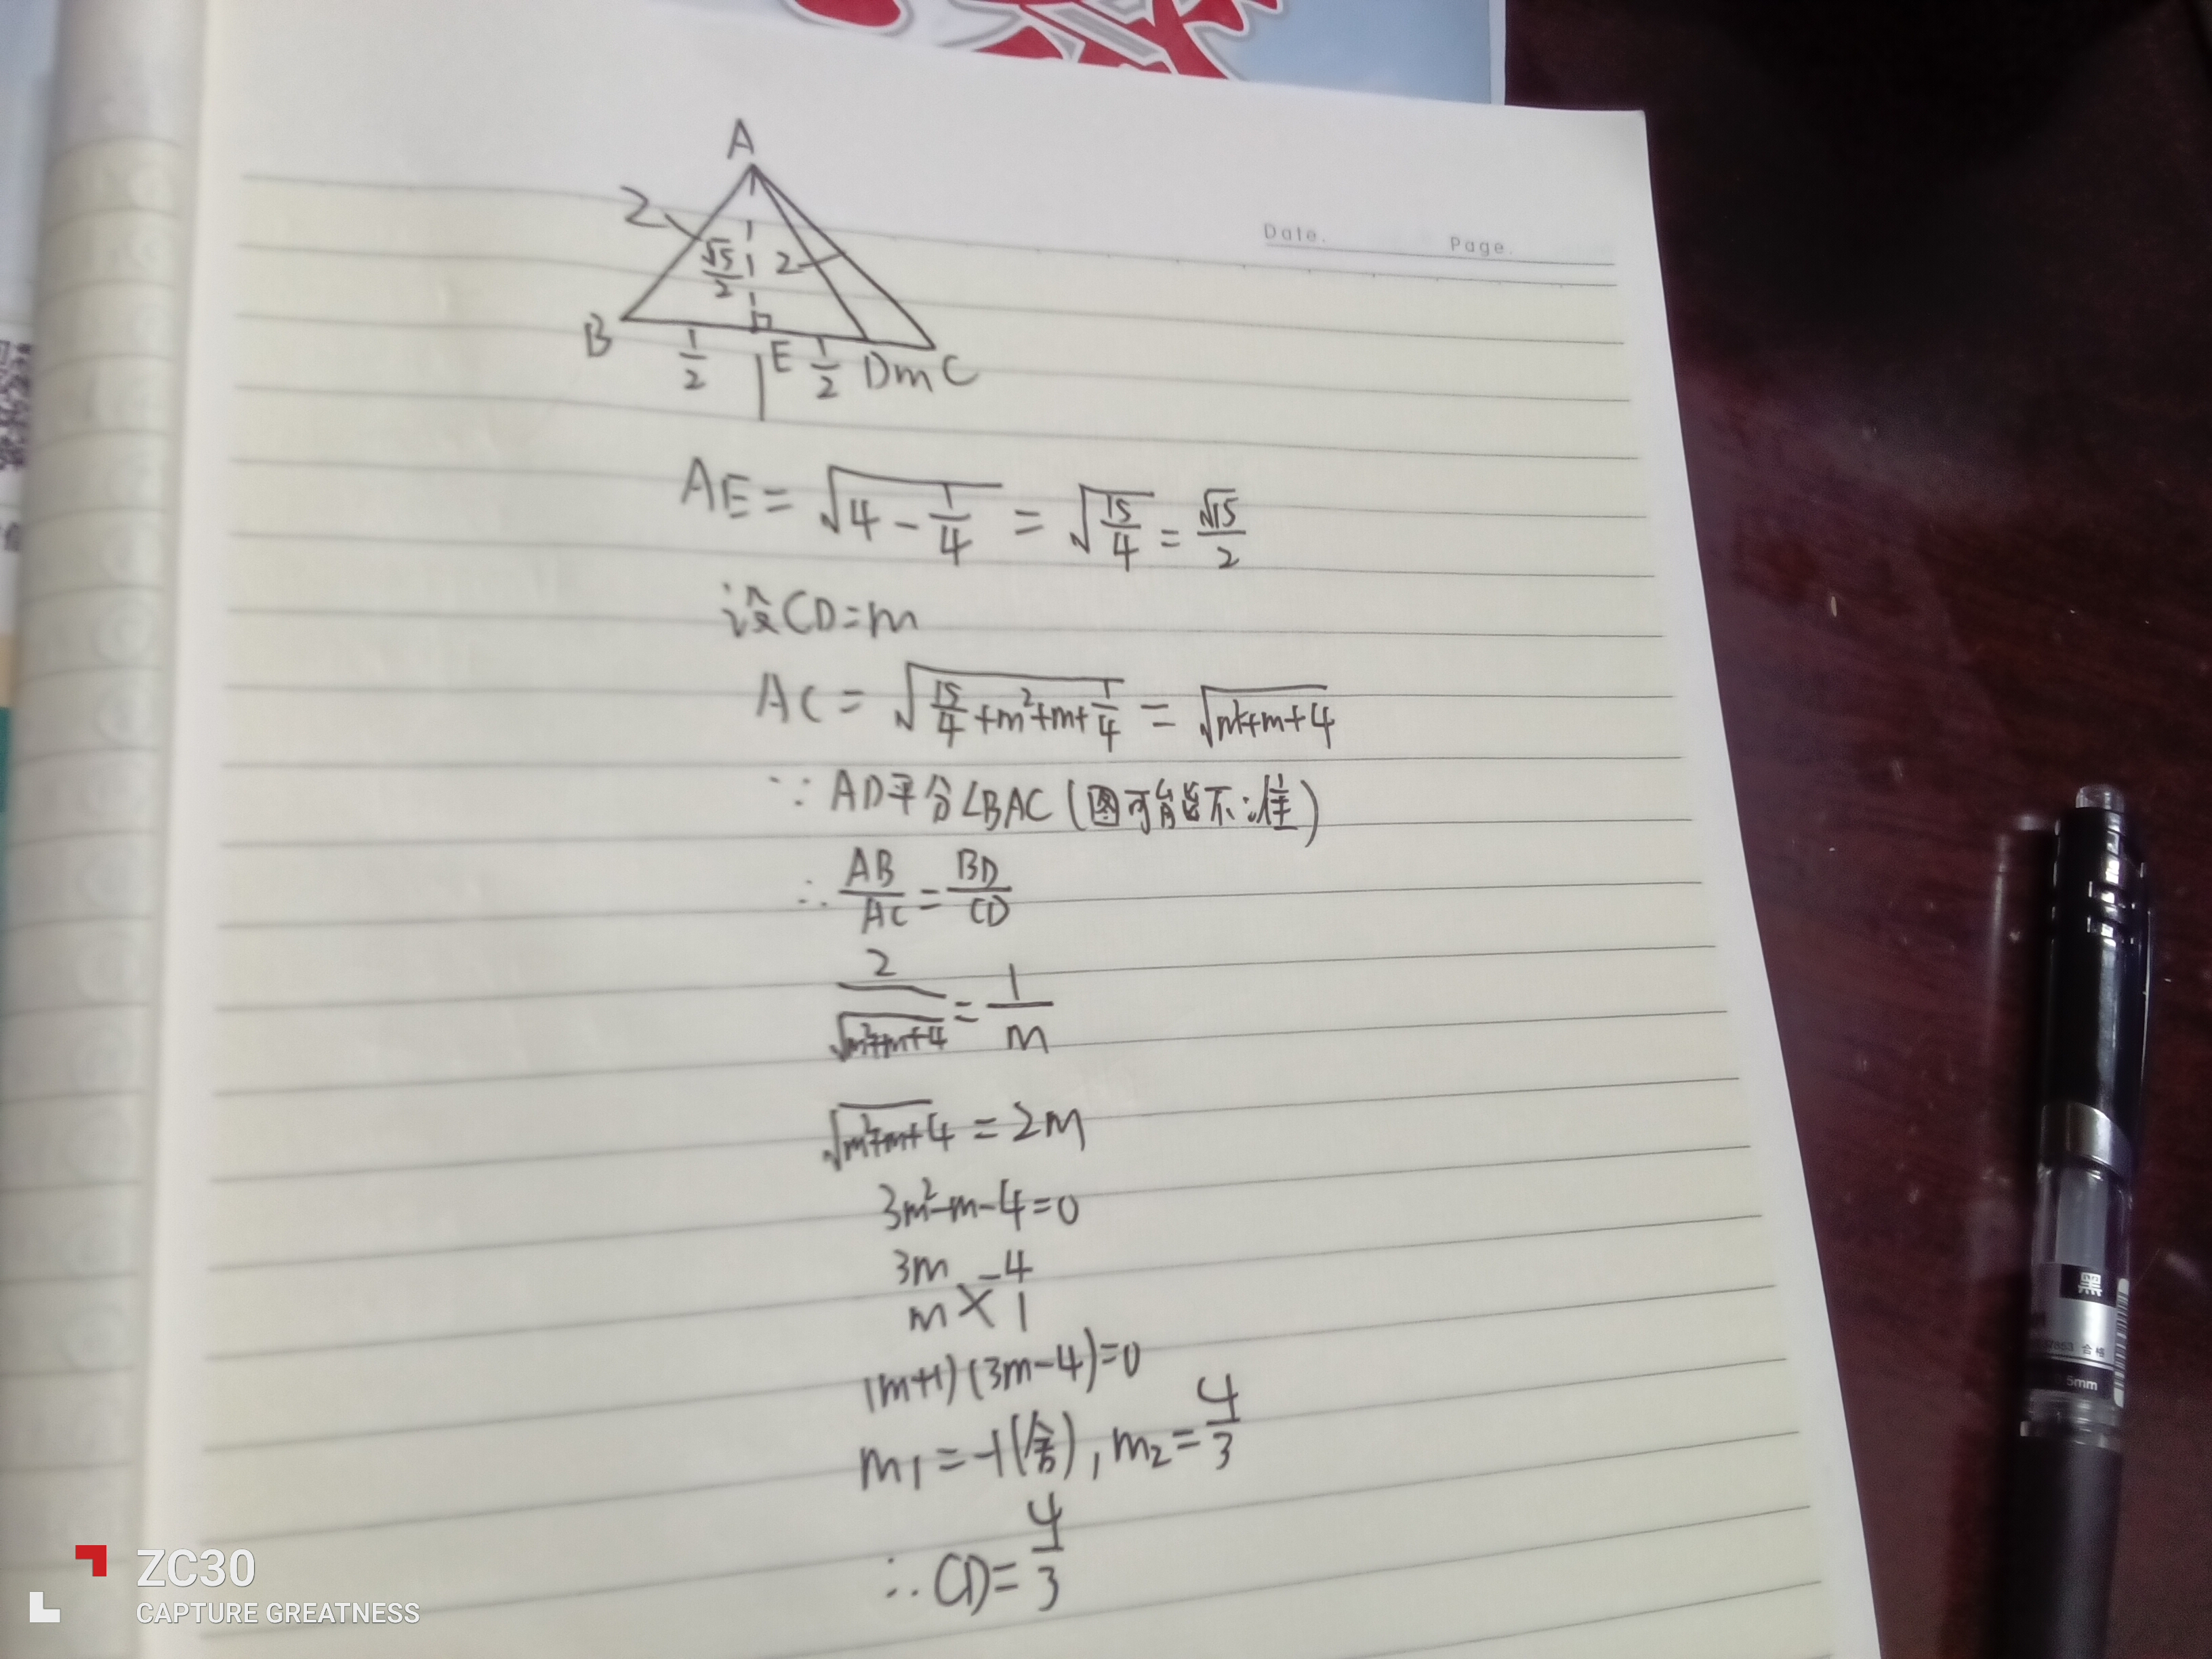 A
2
√15/2
2
B
1/2
E
1/2
D m C
Date.
Page.
AE = √(4 - 1/4) = √(15/4) = √15/2
设CD=m
AC = √(15/4+m²+m+1/4) = √(m²+m+4)
∵ AD平分∠BAC(图可能不准)
∴ AB/AC = BD/CD
2/√(m²+m+4) = 1/m
√(m²+m+4) = 2m
3m²-m-4=0
3m -4
m × 1
(m+1)(3m-4)=0
m₁=-1(舍), m₂=4/3
∴ CD=4/3
黑
合格
5mm
ZC30
CAPTURE GREATNESS